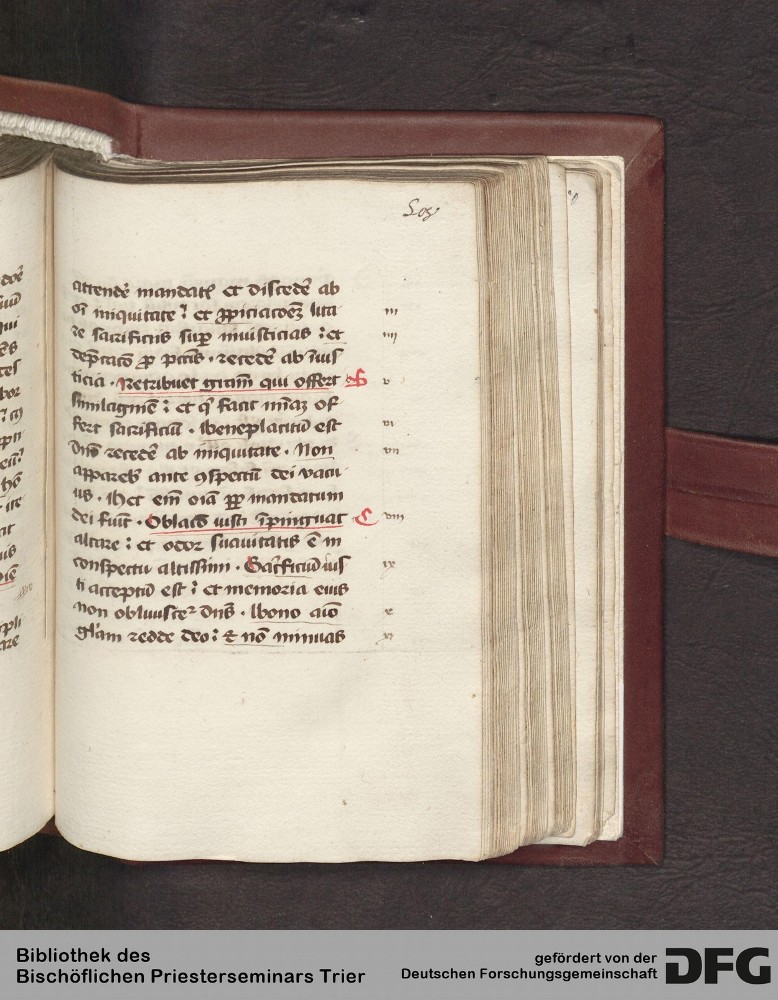 attendẽ mandatꝭ et discedẽ ab
oĩ iniquitate : et ꝓpiciatoẽꝫ lita
re sacrificiis supꝛ iniusticias : et
dep̃catõ ꝓ pctĩs . recedẽ ab ĩius
ticia . Retribuet grãm qui offert B
similaginẽ : et qͥ facit mĩaꝫ of
fert sacrificiũ . Beneplacitũ est
dño recedẽ ab iniquitate . Non
apparebꝭ ante ꝯspectũ dei vacu
us . Hec eñ oĩa ꝓꝑ mandatum
dei fiũt . Oblacõ iusti ĩpinguat C
altare : et odor suauitatis ẽ in
conspectu altissimi . Sacⁱficiũ ius
ti acceptũ est : et memoria eius
non obliuiscetͬ dñs . Bono aĩo
gl'am redde deo : & nõ minuas
iii
iiii
v
vi
vii
viii
ix
x
xi
Bibliothek des
Bischöflichen Priesterseminars Trier
gefördert von der
Deutschen Forschungsgemeinschaft
DFG